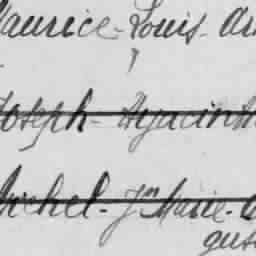 Maurice - Louis - Au
Joseph - Hyacinth
Michel - Jn Marie - A
gus